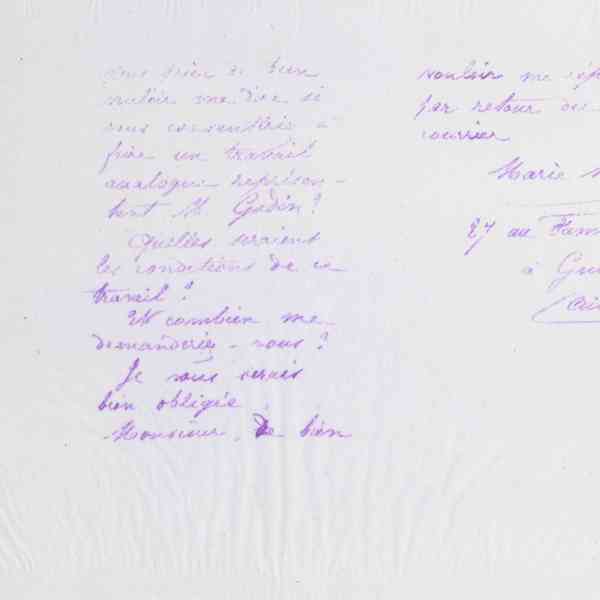 vous prier de bien
vouloir me dire si
vous consentiriez à
faire un travail
analogue représen-
tant M. Godin?
Quelles seraient
les conditions de ce
travail?
Et combien me
demanderiez-vous?
Je vous serais
bien obligée,
Monsieur, de bien
vouloir me
par retour du
courrier
Marie
27 au Fam
à Gui